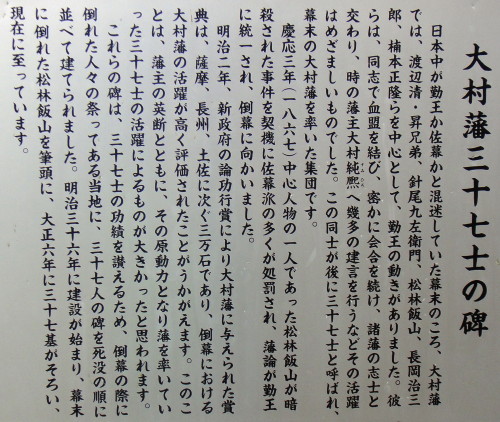 大村藩三十七士の碑
日本中が勤王か佐幕かと混迷していた幕末のころ、大村藩
では、渡辺清・昇兄弟、針尾九左衛門、松林飯山、長岡治三
郎、楠本正隆らを中心として、勤王の動きがありました。彼
らは、同志で血盟を結び、密かに会合を続け、諸藩の志士と
交わり、時の藩主大村純熈へ幾多の建言を行うなどその活躍
はめざましいものでした。この同士が後に三十七士と呼ばれ、
幕末の大村藩を率いた集団です。
慶応三年(一八六七)中心人物の一人であった松林飯山が暗
殺された事件を契機に佐幕派の多くが処罰され、藩論が勤王
に統一され、倒幕に向かいました。
明治二年、新政府の論功行賞により大村藩に与えられた賞
典は、薩摩、長州、土佐に次ぐ三万石であり、倒幕における
大村藩の活躍が高く評価されたことがうかがえます。このこ
とは、藩主の英断とともに、その原動力となり藩を率いてい
った三十七士の活躍によるものが大きかったと思われます。
これらの碑は、三十七士の功績を讃えるため、倒幕の際に
倒れた人々の祭ってある当地に、三十七人の碑を死没の順に
並べて建てられました。明治三十六年に建設が始まり、幕末
に倒れた松林飯山を筆頭に、大正六年に三十七基がそろい、
現在に至っています。